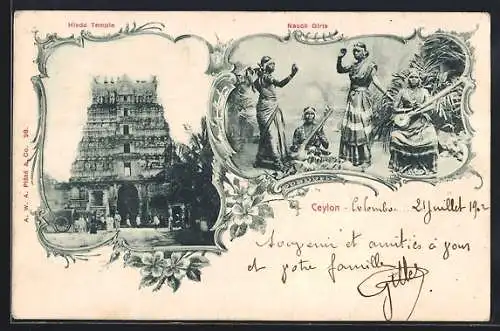 Hindu Temple
Nauch Girls
A. W. A. Plâté & Co. 98.
Ceylon - Colombo. 21 juillet 1902
Souvenir et amitiés à vous
et votre famille